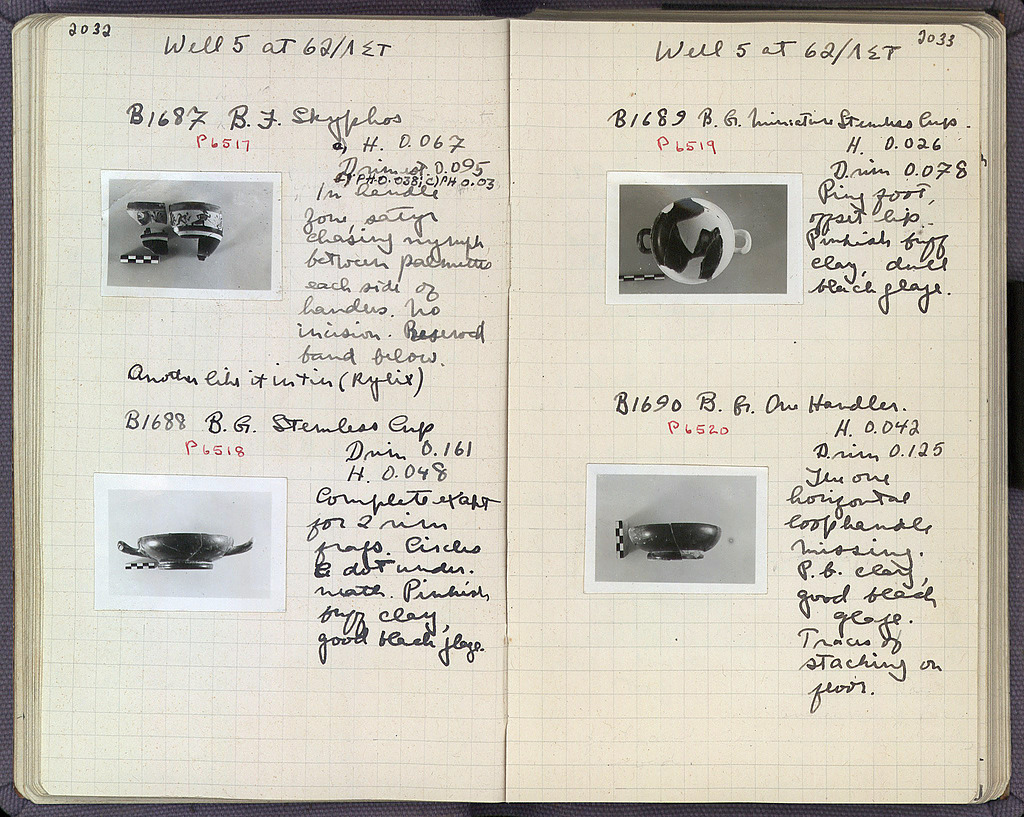 2032
Well 5 at 62/ΛΣΤ
B1687 B.F. Skyphos
P6517
a) H. 0.067
D rim est 0.095
b) PH 0.038; c) PH 0.03
In handle
zone satyr
chasing nymph
between palmettes
each side of
handles. No
incision. Reserved
band below.
Another like it in tin (Kylix)
B1688 B.G. Stemless Cup
P6518
D rim 0.161
H. 0.048
Complete except
for 2 rim
frags. Circles
& dot under-
neath. Pinkish
buff clay,
good black glaze.
2033
Well 5 at 62/ΛΣΤ
B1689 B.G. Miniature Stemless Cup.
P6519
H. 0.026
D rim 0.078
Ring foot,
offset lip.
Pinkish buff
clay, dull
black glaze.
B1690 B.G. One Handler.
P6520
H. 0.042
D. rim 0.125
The one
horizontal
loop handle
missing.
P.b. clay,
good black
glaze.
Traces of
stacking on
floor.